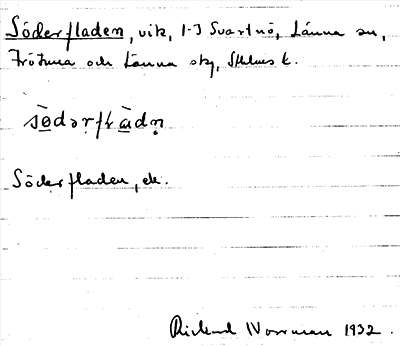 Söderfladen, vik, 1-3 Svartnö, Länna sn,
Frötuna och Länna skg, Sthlms l.
sø̀dərflàdn̥
Söderfladen, ek.
Rickard Norrman 1932.